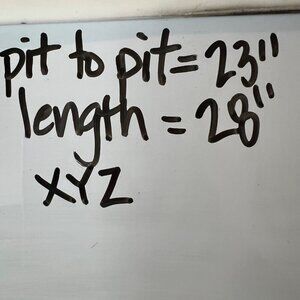 pit to pit = 23"
length = 28"
XYZ